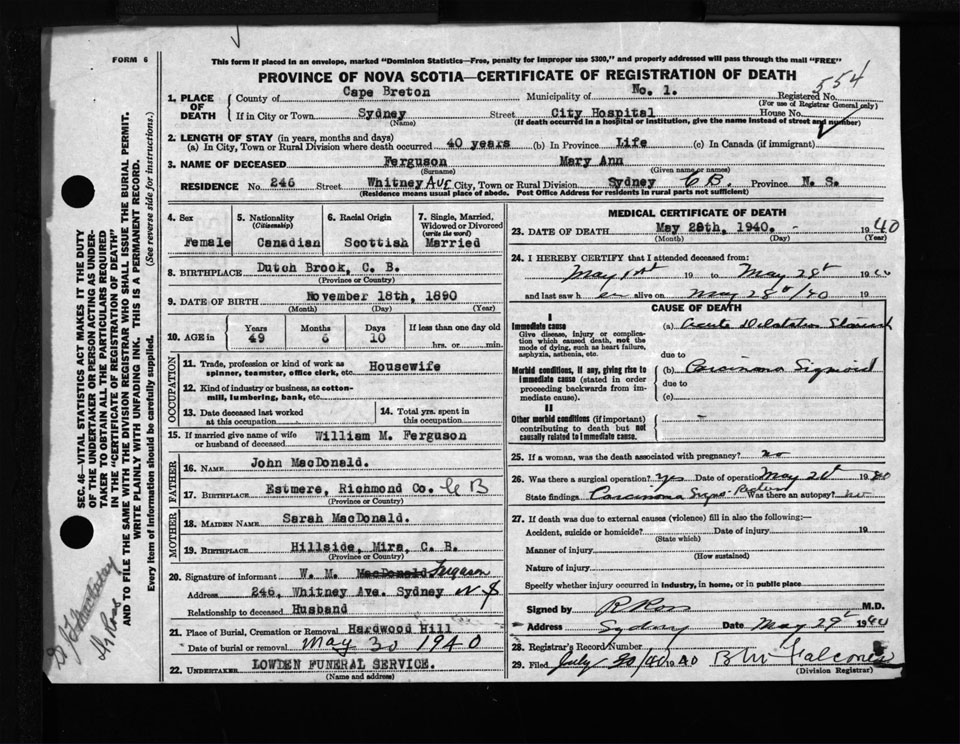 FORM 6
This form if placed in an envelope, marked "Dominion Statistics—Free, penalty for improper use $300," and properly addressed will pass through the mail "FREE"
PROVINCE OF NOVA SCOTIA—CERTIFICATE OF REGISTRATION OF DEATH
554
1. PLACE OF DEATH
County of Cape Breton Municipality of No. 1. Registered No.
(For use of Registrar General only)
If in City or Town Sydney Street City Hospital House No.
(Name) (If death occurred in a hospital or institution, give the name instead of street and number)
2. LENGTH OF STAY (in years, months and days)
(a) In City, Town or Rural Division where death occurred 40 years (b) In Province Life (c) In Canada (if immigrant)
3. NAME OF DECEASED Ferguson Mary Ann
(Surname) (Given name or names)
RESIDENCE No. 246 Street Whitney Ave City, Town or Rural Division Sydney C B. Province N. S.
(Residence means usual place of abode. Post Office Address for residents in rural parts not sufficient)
4. Sex Female
5. Nationality (Citizenship) Canadian
6. Racial Origin Scottish
7. Single, Married, Widowed or Divorced (write the word) Married
8. BIRTHPLACE Dutch Brook, C. B.
(Province or Country)
9. DATE OF BIRTH November 18th, 1890
(Month) (Day) (Year)
10. AGE in Years 49 Months 6 Days 10 If less than one day old hrs. or min.
OCCUPATION
11. Trade, profession or kind of work as spinner, teamster, office clerk, etc. Housewife
12. Kind of industry or business, as cotton-mill, lumbering, bank, etc.
13. Date deceased last worked at this occupation
14. Total yrs. spent in this occupation
15. If married give name of wife or husband of deceased William M. Ferguson
FATHER
16. NAME John MacDonald.
17. BIRTHPLACE Estmere, Richmond Co. C B
(Province or Country)
MOTHER
18. MAIDEN NAME Sarah MacDonald.
19. BIRTHPLACE Hillside, Mira, C. B.
(Province or Country)
20. Signature of informant W. M. MacDonald Ferguson
Address 246, Whitney Ave. Sydney N S
Relationship to deceased Husband
21. Place of Burial, Cremation or Removal Hardwood Hill
Date of burial or removal May 30 1940
22. UNDERTAKER LOWDEN FUNERAL SERVICE.
(Name and address)
MEDICAL CERTIFICATE OF DEATH
23. DATE OF DEATH May 28th, 1940. 1940
(Month) (Day) (Year)
24. I HEREBY CERTIFY that I attended deceased from:
May 1st 19 to May 28th 1940
and last saw h er alive on May 28th/40 19
CAUSE OF DEATH
I
Immediate cause
Give disease, injury or complication which caused death, not the mode of dying, such as heart failure, asphyxia, asthenia, etc.
(a) Acute Dilatation Stomach
due to
Morbid conditions, if any, giving rise to immediate cause (stated in order proceeding backwards from immediate cause).
(b) Carcinoma Sigmoid
due to
(c)
II
Other morbid conditions (if important) contributing to death but not causally related to immediate cause.
25. If a woman, was the death associated with pregnancy? no
26. Was there a surgical operation? yes Date of operation May 20th 1940
State findings Carcinoma Was there an autopsy? no
27. If death was due to external causes (violence) fill in also the following:—
Accident, suicide or homicide? Date of injury 19
(State which)
Manner of injury
(How sustained)
Nature of injury
Specify whether injury occurred in industry, in home, or in public place
Signed by R Ross M.D.
Address Sydney Date May 29th 1940
28. Registrar's Record Number
29. Filed July 30/40 1940
(Division Registrar)
SEC. 46—VITAL STATISTICS ACT MAKES IT THE DUTY
OF THE UNDERTAKER OR PERSON ACTING AS UNDER-
TAKER TO OBTAIN ALL THE PARTICULARS REQUIRED
IN THE "CERTIFICATE OF REGISTRATION OF DEATH"
AND TO FILE THE SAME WITH THE DIVISION REGISTRAR WHO SHALL ISSUE THE BURIAL PERMIT.
WRITE PLAINLY WITH UNFADING INK. THIS IS A PERMANENT RECORD.
Every item of Information should be carefully supplied. (See reverse side for instructions.)
Dr Ross